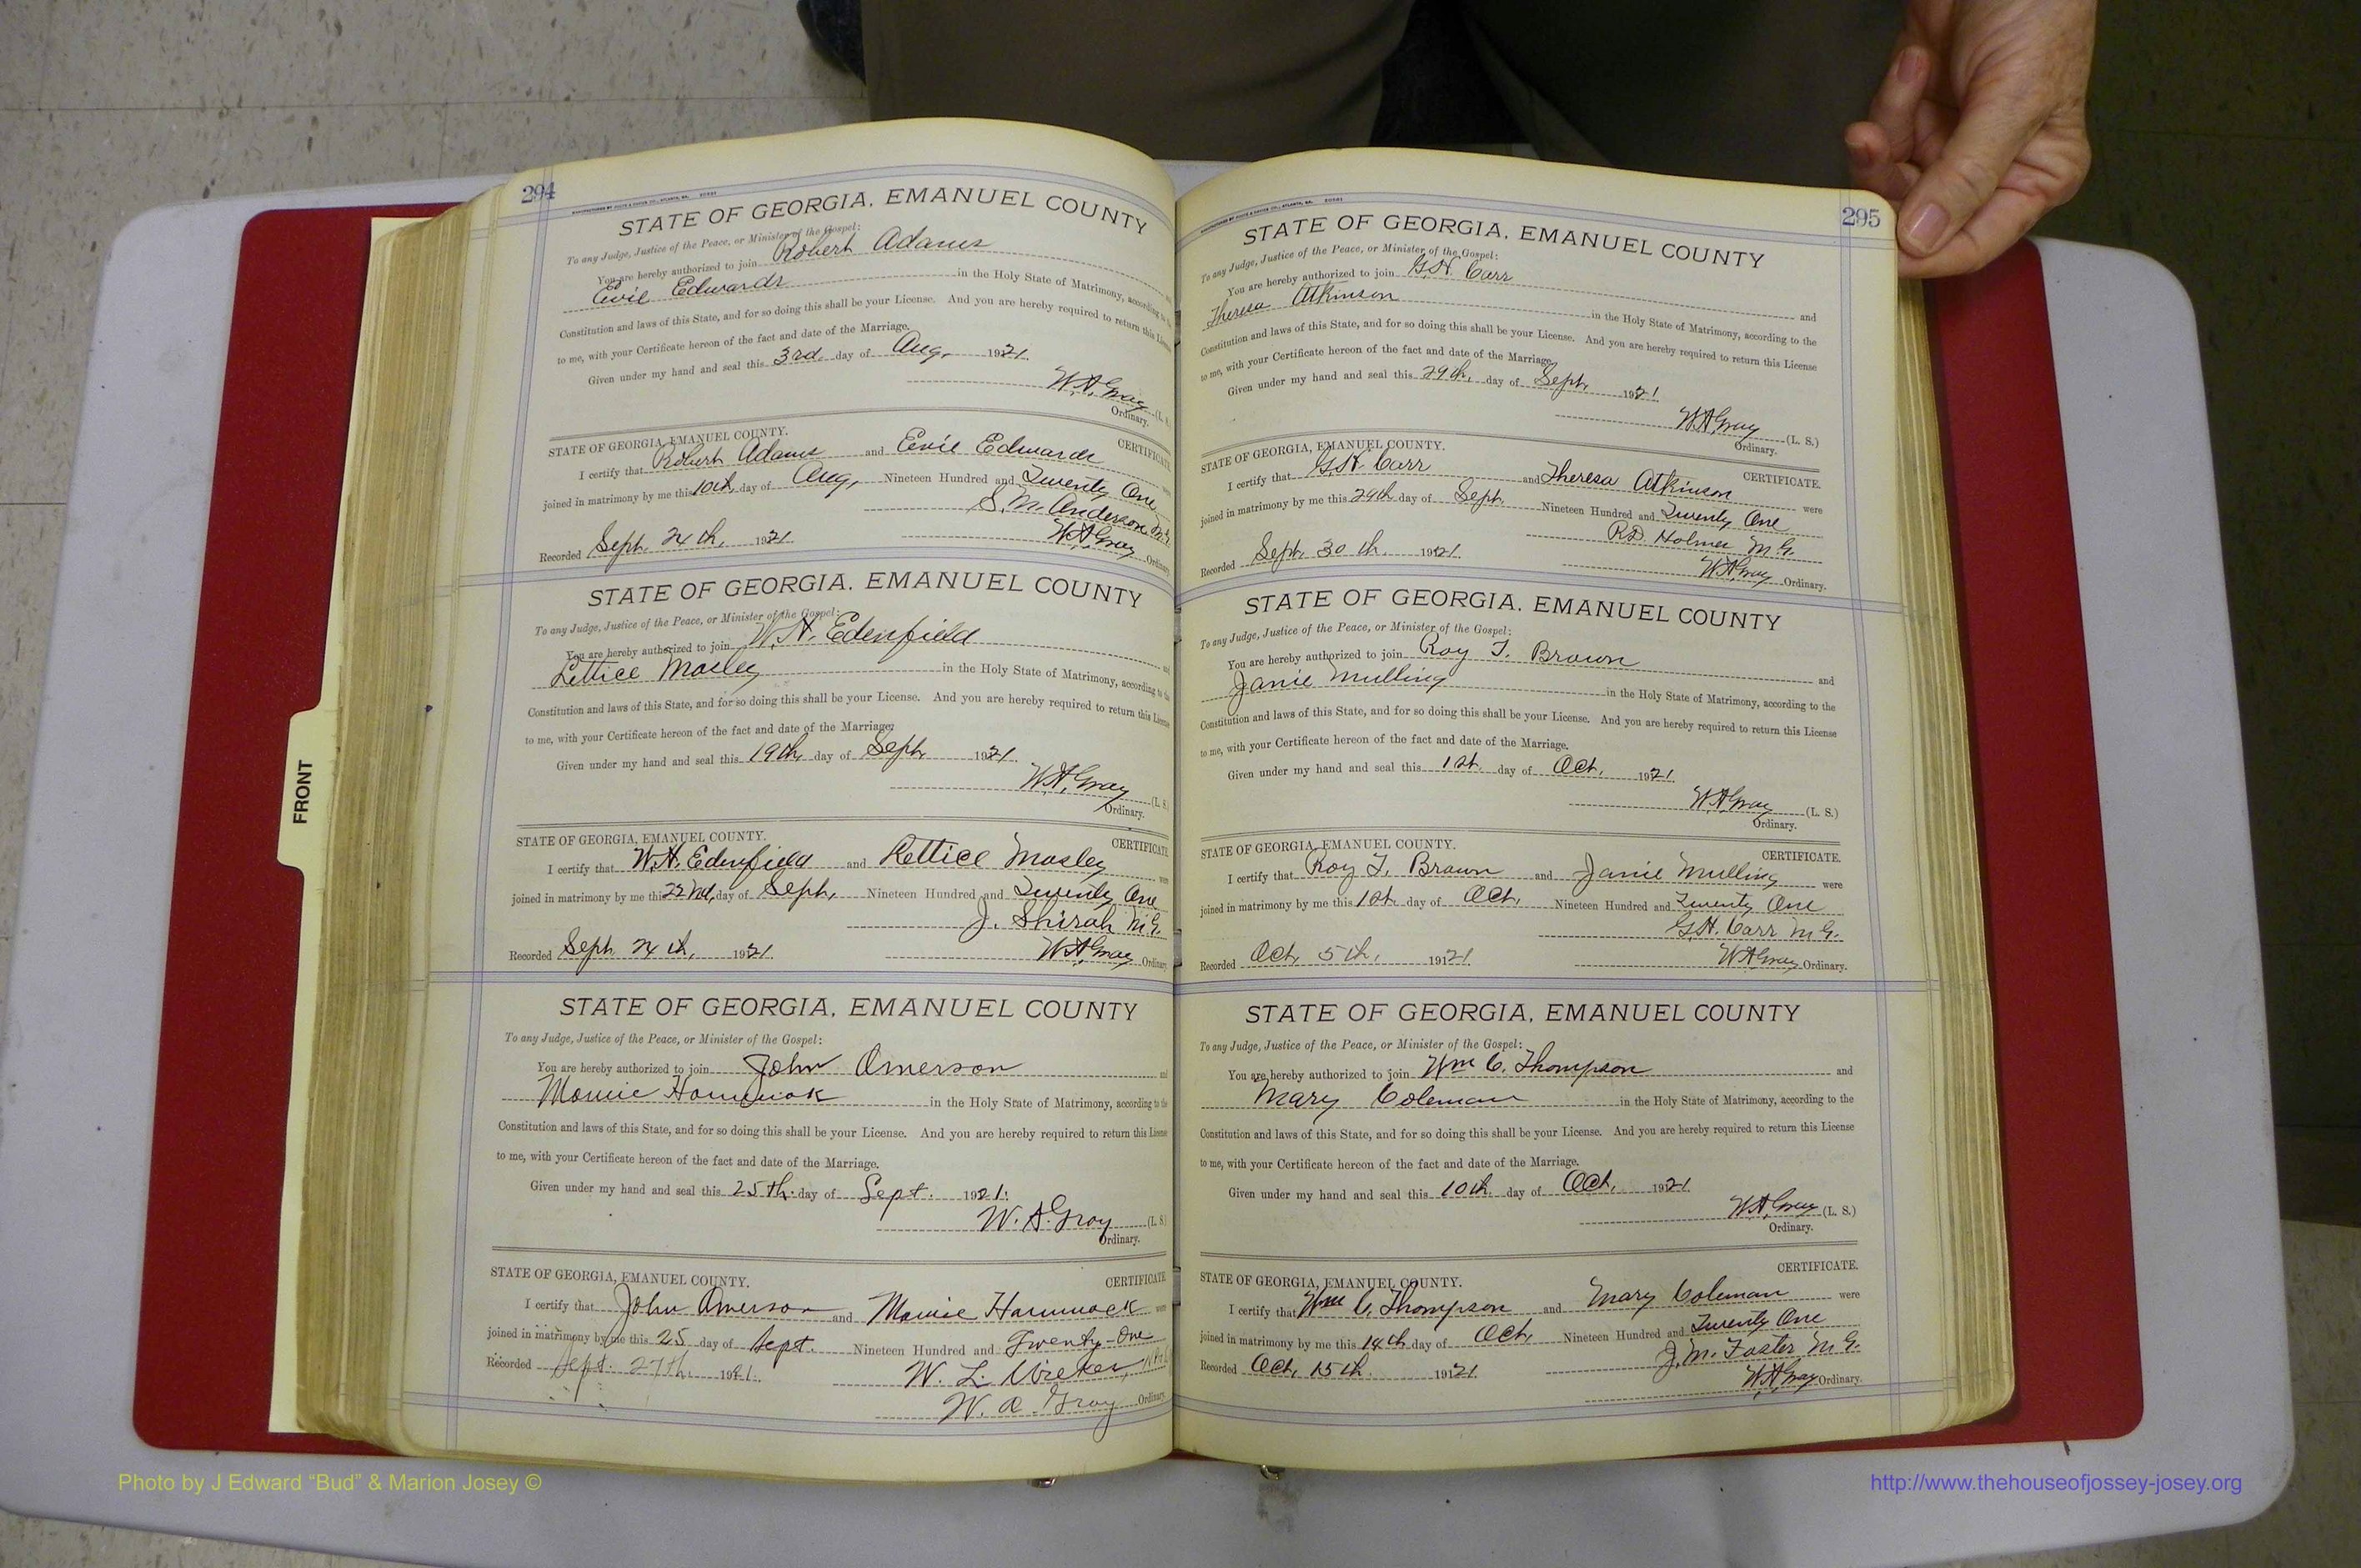 294
STATE OF GEORGIA, EMANUEL COUNTY
To any Judge, Justice of the Peace, or Minister of the Gospel:
You are hereby authorized to join Robert Adams
Evie Edwards in the Holy State of Matrimony, according to the
Constitution and laws of this State, and for so doing this shall be your License. And you are hereby required to return this License
to me, with your Certificate hereon of the fact and date of the Marriage.
Given under my hand and seal this 3rd. day of Aug, 1921.
W.A. Gray (L. S.
Ordinary.
STATE OF GEORGIA, EMANUEL COUNTY. CERTIFICATE
I certify that Robert Adams and Evie Edwards were
joined in matrimony by me this 10th, day of Aug, Nineteen Hundred and Twenty One
S. M. Anderson M.G.
Recorded Sept. 24th, 1921. W.A. Gray Ordinary
STATE OF GEORGIA, EMANUEL COUNTY
To any Judge, Justice of the Peace, or Minister of the Gospel:
You are hereby authorized to join W. H. Edenfield and
Lettice Mosley in the Holy State of Matrimony, according to the
Constitution and laws of this State, and for so doing this shall be your License. And you are hereby required to return this License
to me, with your Certificate hereon of the fact and date of the Marriage.
Given under my hand and seal this 19th, day of Sept, 1921.
W.A. Gray (L. S.
Ordinary.
STATE OF GEORGIA, EMANUEL COUNTY. CERTIFICATE
I certify that W.H. Edenfield and Lettice Mosley were
joined in matrimony by me this 22nd, day of Sept, Nineteen Hundred and Twenty One
J. Shirah M.G.
Recorded Sept 24th, 1921. W.A. Gray Ordinary
STATE OF GEORGIA, EMANUEL COUNTY
To any Judge, Justice of the Peace, or Minister of the Gospel:
You are hereby authorized to join John Omerson and
Mamie Hammock in the Holy State of Matrimony, according to the
Constitution and laws of this State, and for so doing this shall be your License. And you are hereby required to return this License
to me, with your Certificate hereon of the fact and date of the Marriage.
Given under my hand and seal this 25th. day of Sept. 1921.
W. A. Gray (L. S.
Ordinary.
STATE OF GEORGIA, EMANUEL COUNTY. CERTIFICATE
I certify that John Omerson and Mamie Hammock were
joined in matrimony by me this 25 day of Sept. Nineteen Hundred and Twenty-One
Recorded Sept. 27th, 1921. W. L.
W. A. Gray Ordinary
295
STATE OF GEORGIA, EMANUEL COUNTY
To any Judge, Justice of the Peace, or Minister of the Gospel:
You are hereby authorized to join G.H. Carr and
Theresa Atkinson in the Holy State of Matrimony, according to the
Constitution and laws of this State, and for so doing this shall be your License. And you are hereby required to return this License
to me, with your Certificate hereon of the fact and date of the Marriage.
Given under my hand and seal this 29th, day of Sept, 1921.
W.A. Gray (L. S.)
Ordinary.
STATE OF GEORGIA, EMANUEL COUNTY. CERTIFICATE.
I certify that G.H. Carr and Theresa Atkinson were
joined in matrimony by me this 29th day of Sept, Nineteen Hundred and Twenty One
R.D. Holmes M.G.
Recorded Sept. 30th. 1921. W.A. Gray Ordinary.
STATE OF GEORGIA, EMANUEL COUNTY
To any Judge, Justice of the Peace, or Minister of the Gospel:
You are hereby authorized to join Roy T. Brown and
Janie Mulling in the Holy State of Matrimony, according to the
Constitution and laws of this State, and for so doing this shall be your License. And you are hereby required to return this License
to me, with your Certificate hereon of the fact and date of the Marriage.
Given under my hand and seal this 1st. day of Oct, 1921.
W.A. Gray (L. S.)
Ordinary.
STATE OF GEORGIA, EMANUEL COUNTY. CERTIFICATE.
I certify that Roy T. Brown and Janie Mulling were
joined in matrimony by me this 1st. day of Oct, Nineteen Hundred and Twenty One
G.H. Carr M.G.
Recorded Oct, 5th, 1921. W.A. Gray Ordinary.
STATE OF GEORGIA, EMANUEL COUNTY
To any Judge, Justice of the Peace, or Minister of the Gospel:
You are hereby authorized to join Wm C. Thompson and
Mary Coleman in the Holy State of Matrimony, according to the
Constitution and laws of this State, and for so doing this shall be your License. And you are hereby required to return this License
to me, with your Certificate hereon of the fact and date of the Marriage.
Given under my hand and seal this 10th. day of Oct, 1921.
W.A. Gray (L. S.)
Ordinary.
STATE OF GEORGIA, EMANUEL COUNTY. CERTIFICATE.
I certify that Wm C. Thompson and Mary Coleman were
joined in matrimony by me this 14th day of Oct, Nineteen Hundred and Twenty One
J. M. Foster M.G.
Recorded Oct, 15th. 1921. W.A. Gray Ordinary.
FRONT
Photo by J Edward “Bud” & Marion Josey ©
http://www.thehouseofjossey-josey.org